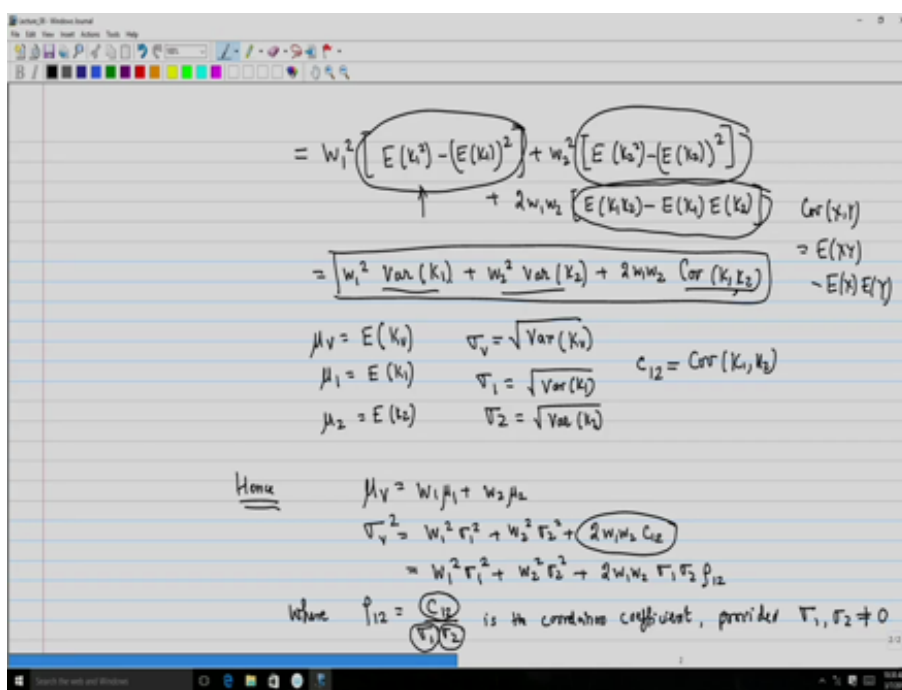 Lecture_05 - Windows Journal
File Edit View Insert Actions Tools Help
= W₁² [E(K₁²) - (E(K₁))²] + W₂² [E(K₂²) - (E(K₂))²]
+ 2w₁w₂ [E(K₁K₂) - E(K₁) E(K₂)]
Cov(X,Y)
= E(XY)
- E(X)E(Y)
= W₁² Var(K₁) + W₂² Var(K₂) + 2w₁w₂ Cov(K₁,K₂)
μᵥ = E(Kᵥ) σᵥ = √Var(Kᵥ)
μ₁ = E(K₁) σ₁ = √Var(K₁) c₁₂ = Cov(K₁,K₂)
μ₂ = E(K₂) σ₂ = √Var(K₂)
Hence μᵥ = W₁μ₁ + W₂μ₂
σᵥ² = W₁²σ₁² + W₂²σ₂² + 2w₁w₂ C₁₂
= W₁²σ₁² + W₂²σ₂² + 2w₁w₂ σ₁σ₂ρ₁₂
Where ρ₁₂ = C₁₂ / σ₁σ₂ is the correlation coefficient, provided σ₁, σ₂ ≠ 0
2/2
2
Search the web and Windows